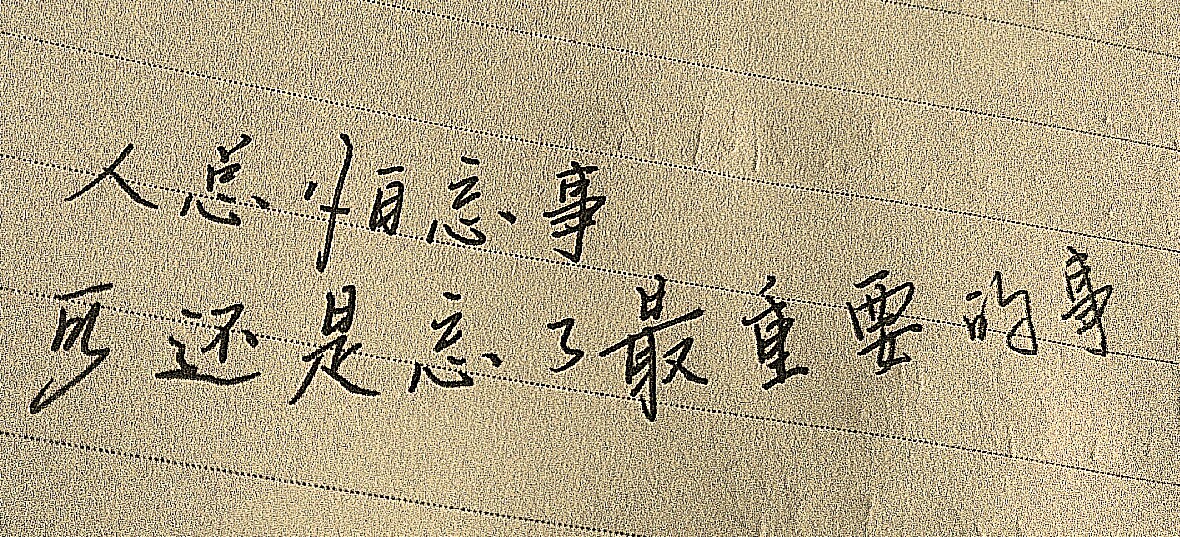 人总怕忘事
可还是忘了最重要的事